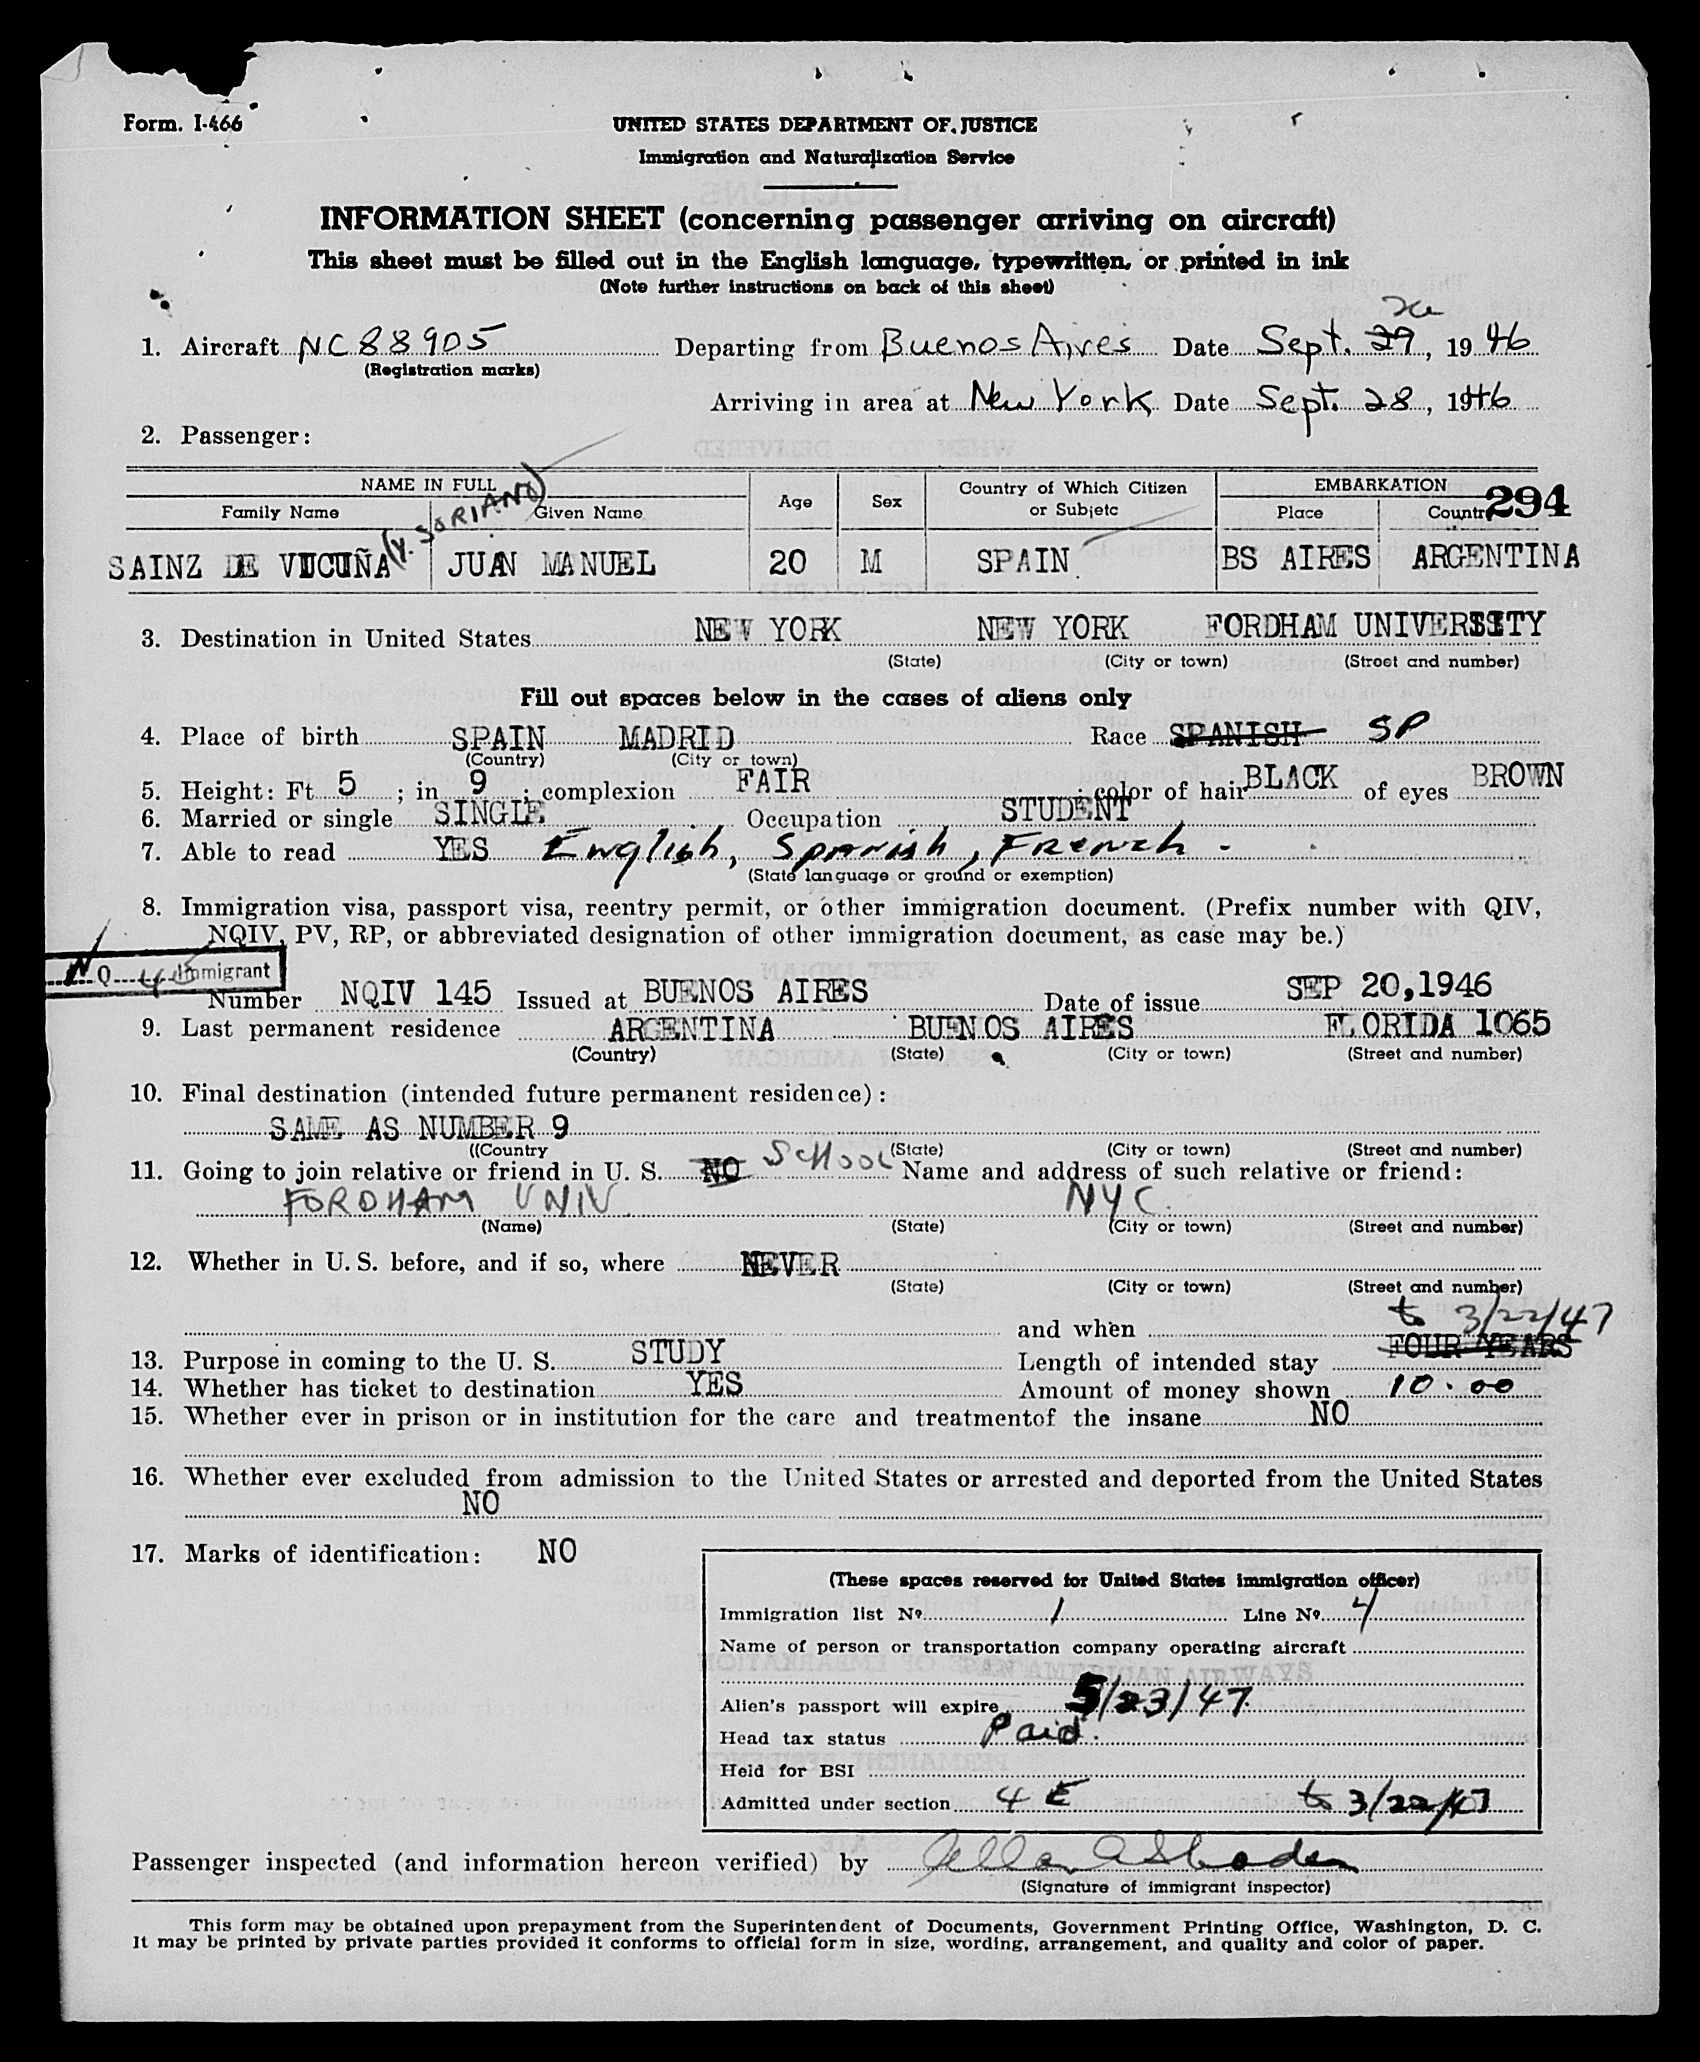 Form. I-466
UNITED STATES DEPARTMENT OF JUSTICE
Immigration and Naturalization Service
INFORMATION SHEET (concerning passenger arriving on aircraft)
This sheet must be filled out in the English language, typewritten, or printed in ink
(Note further instructions on back of this sheet)
1. Aircraft NC 88905 Departing from Buenos Aires Date Sept. 27, 19 46
(Registration marks)
Arriving in area at New York Date Sept. 28, 1946
2. Passenger:
NAME IN FULL Age Sex Country of Which Citizen or Subjetc EMBARKATION 294
Family Name Given Name Place Country
(Y. SORIANO)
SAINZ DE VICUÑA JUAN MANUEL 20 M SPAIN BS AIRES ARGENTINA
3. Destination in United States NEW YORK NEW YORK FORDHAM UNIVERSITY
(State) (City or town) (Street and number)
Fill out spaces below in the cases of aliens only
4. Place of birth SPAIN MADRID Race SPANISH SP
(Country) (City or town)
5. Height: Ft 5 ; in 9 ; complexion FAIR ; color of hair BLACK of eyes BROWN
6. Married or single SINGLE Occupation STUDENT
7. Able to read YES English, Spanish, French.
(State language or ground or exemption)
8. Immigration visa, passport visa, reentry permit, or other immigration document. (Prefix number with QIV,
NQIV, PV, RP, or abbreviated designation of other immigration document, as case may be.)
N Q 45 Immigrant
Number NQIV 145 Issued at BUENOS AIRES Date of issue SEP 20,1946
9. Last permanent residence ARGENTINA BUENOS AIRES FLORIDA 1065
(Country) (State) (City or town) (Street and number)
10. Final destination (intended future permanent residence):
SAME AS NUMBER 9
((Country (State) (City or town) (Street and number)
11. Going to join relative or friend in U. S. NO SCHOOL Name and address of such relative or friend:
FORDHAM UNIV. NYC.
(Name) (State) (City or town) (Street and number)
12. Whether in U. S. before, and if so, where NEVER
(State) (City or town) (Street and number)
and when to 3/22/47
13. Purpose in coming to the U. S. STUDY Length of intended stay FOUR YEARS
14. Whether has ticket to destination YES Amount of money shown 10.00
15. Whether ever in prison or in institution for the care and treatmentof the insane NO
16. Whether ever excluded from admission to the United States or arrested and deported from the United States
NO
17. Marks of identification: NO
(These spaces reserved for United States immigration officer)
Immigration list Nº 1 Line Nº 4
Name of person or transportation company operating aircraft
PAN AMERICAN AIRWAYS
Alien's passport will expire 5/23/47
Head tax status Paid.
Held for BSI
Admitted under section 4 E to 3/22/47
Passenger inspected (and information hereon verified) by
(Signature of immigrant inspector)
This form may be obtained upon prepayment from the Superintendent of Documents, Government Printing Office, Washington, D. C.
It may be printed by private parties provided it conforms to official form in size, wording, arrangement, and quality and color of paper.